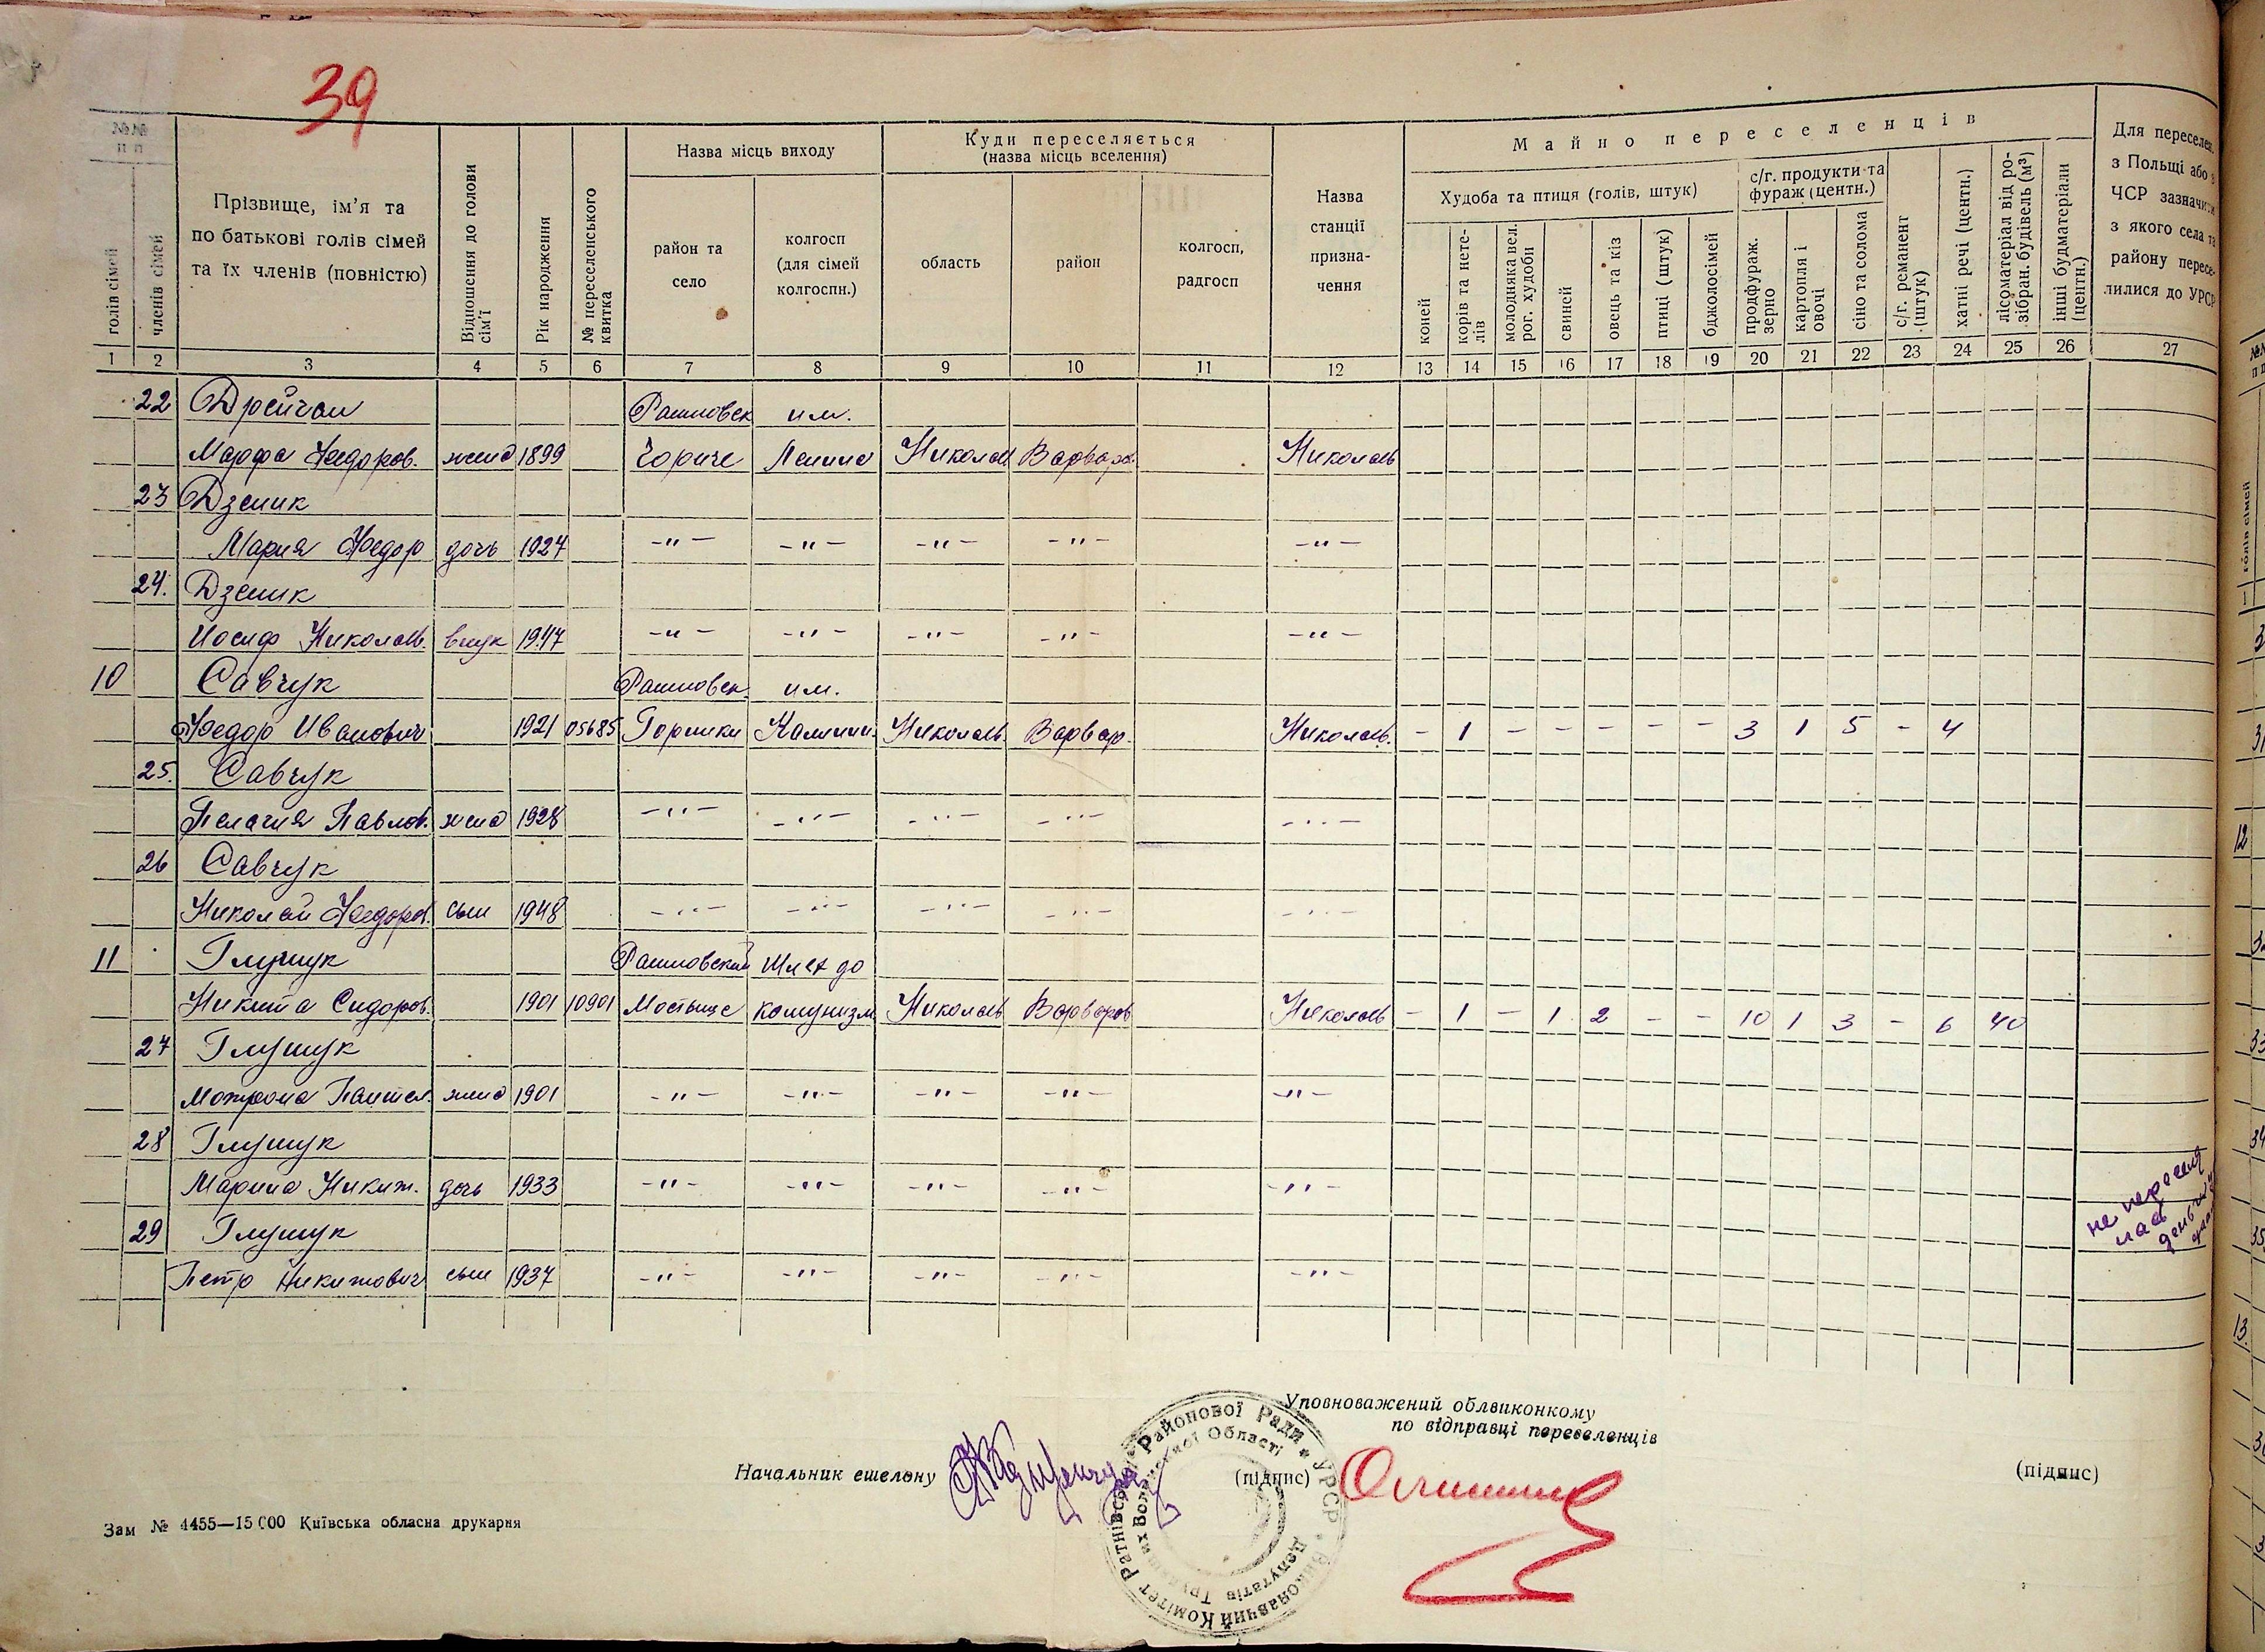 39
№№ п п
голів сімей
членів сімей
Прізвище, ім'я та по батькові голів сімей та їх членів (повністю)
Відношення до голови сім'ї
Рік народження
№ переселенського квитка
Назва місць виходу
район та село
колгосп (для сімей колгоспн.)
Куди переселяється (назва місць вселення)
область
район
колгосп, радгосп
Назва станції призначення
Майно переселенців
Худоба та птиця (голів, штук)
коней
корів та нетелів
молодняка вел. рог. худоби
свиней
овець та кіз
птиці (штук)
бджолосімей
с/г. продукти та фураж (центн.)
продфураж. зерно
картопля і овочі
сіно та солома
с/г. реманент (штук)
хатні речі (центн.)
лісоматеріал від розібран. будівель (м³)
інші будматеріали (центн.)
Для переселен. з Польщі або з ЧСР зазначити з якого села та району переселилися до УРСР
1 2 3 4 5 6 7 8 9 10 11 12 13 14 15 16 17 18 19 20 21 22 23 24 25 26 27
22 Ратновск им.
Марфа Федоров. жена 1899 Ленина Николаев Варвар. Николаев
23 Дзеник
Мария Федор дочь 1927 -"- -"- -"- -"- -"-
24. Дзеник
Иосиф Николаев. внук 1947 -"- -"- -"- -"- -"-
10 Савчук Ратновск. им.
Федор Иванович 1921 05685 Горники Калинин. Николаев. Варвар. Николаев. - 1 - - - - - 3 1 5 - 4
25. Савчук
Пелагия Павлов. жена 1928 -"- -"- -"- -"- -"-
26 Савчук
Николай Федоров. сын 1948 -"- -"- -"- -"- -"-
11 Глущук Ратновский Шлях до
Никита Сидоров. 1901 10901 Мостыще комунизм Николаев Варваров Николаев - 1 - 1 2 - - 10 1 3 - 6 40
27 Глущук
Мотрона Пантел. жена 1901 -"- -"- -"- -"- -"-
28 Глущук
Марина Никит. дочь 1933 -"- -"- -"- -"- -"-
29 Глущук
Петр Никитович сын 1937 -"- -"- -"- -"- -"-
не переселя
лась
Начальник ешелону
(підпис)
Уповноважений облвиконкому
по відправці переселенців
(підпис)
Виконавчий Комітет Ратнівської Районової Ради УРСР
Депутатів Трудящих Волинської Області
Зам № 4455—15 000 Київська обласна друкарня